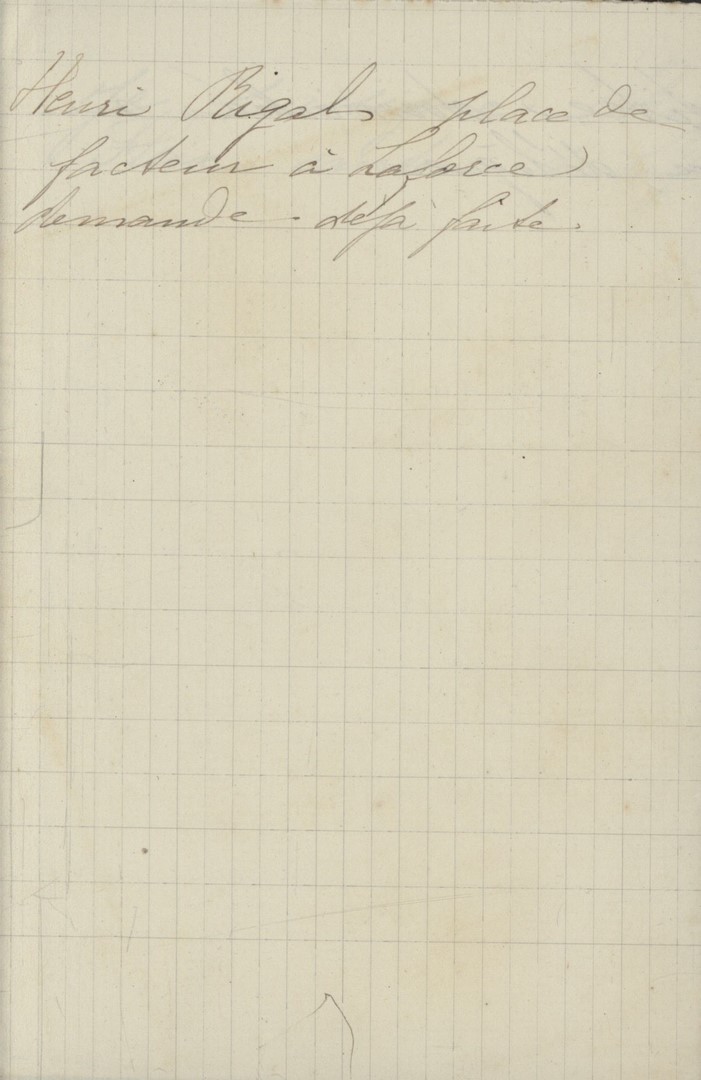 Henri Rigal place de
facteur à Laforce
demande déjà faite.